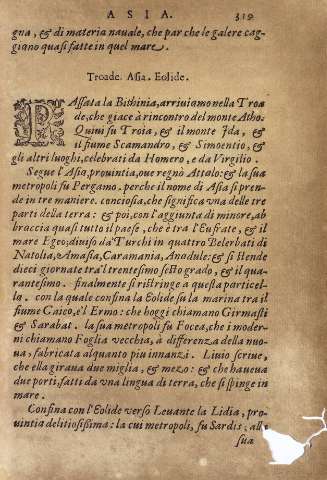 ASIA. 319
gna, & di materia nauale, che par che le galere cag-
giano quasi fatte in quel mare.
Troade. Asia. Eolide.
PASSata la Bithinia, arriuiamo nella Troa
de, che giace à rincontro del monte Atho.
Quiui fu Troia, & il monte Ida, &
il fiume Scamandro, & Simoentio, &
gli altri luoghi, celebrati da Homero, e da Virgilio.
Segue l'Asia, prouintia, oue regnò Attalo: & la sua
metropoli fu Pergamo. perche il nome di Asia si pren-
de in tre maniere. conciosia, che significa vna delle tre
parti della terra: & poi, con l'aggiunta di minore, ab
braccia quasi tutto il paese, che è tra l'Eufrate, & il
mare Egeo, diuiso da Turchi in quattro Belerbati di
Natolia, Amasia, Caramania, Anodule: & si stende
dieci giornate tra'l trentesimo sesto grado, & il qua-
rantesimo. finalmente si ristringe a questa particel-
la. con la quale confina la Eolide su la marina tra il
fiume Caico, e'l Ermo: che hoggi chiamano Girmasti
& Sarabat. la sua metropoli fu Focea, che i moder-
ni chiamano Foglia vecchia, à differenza della nuo-
ua, fabricata alquanto piu innanzi. Liuio scriue,
che ella giraua due miglia, & mezo: & che haueua
due porti, fatti da vna lingua di terra, che si spinge in
mare.
Confina con l'Eolide verso Leuante la Lidia, pro-
uintia delitiosissima: la cui metropoli, fu Sardis, alle
sua